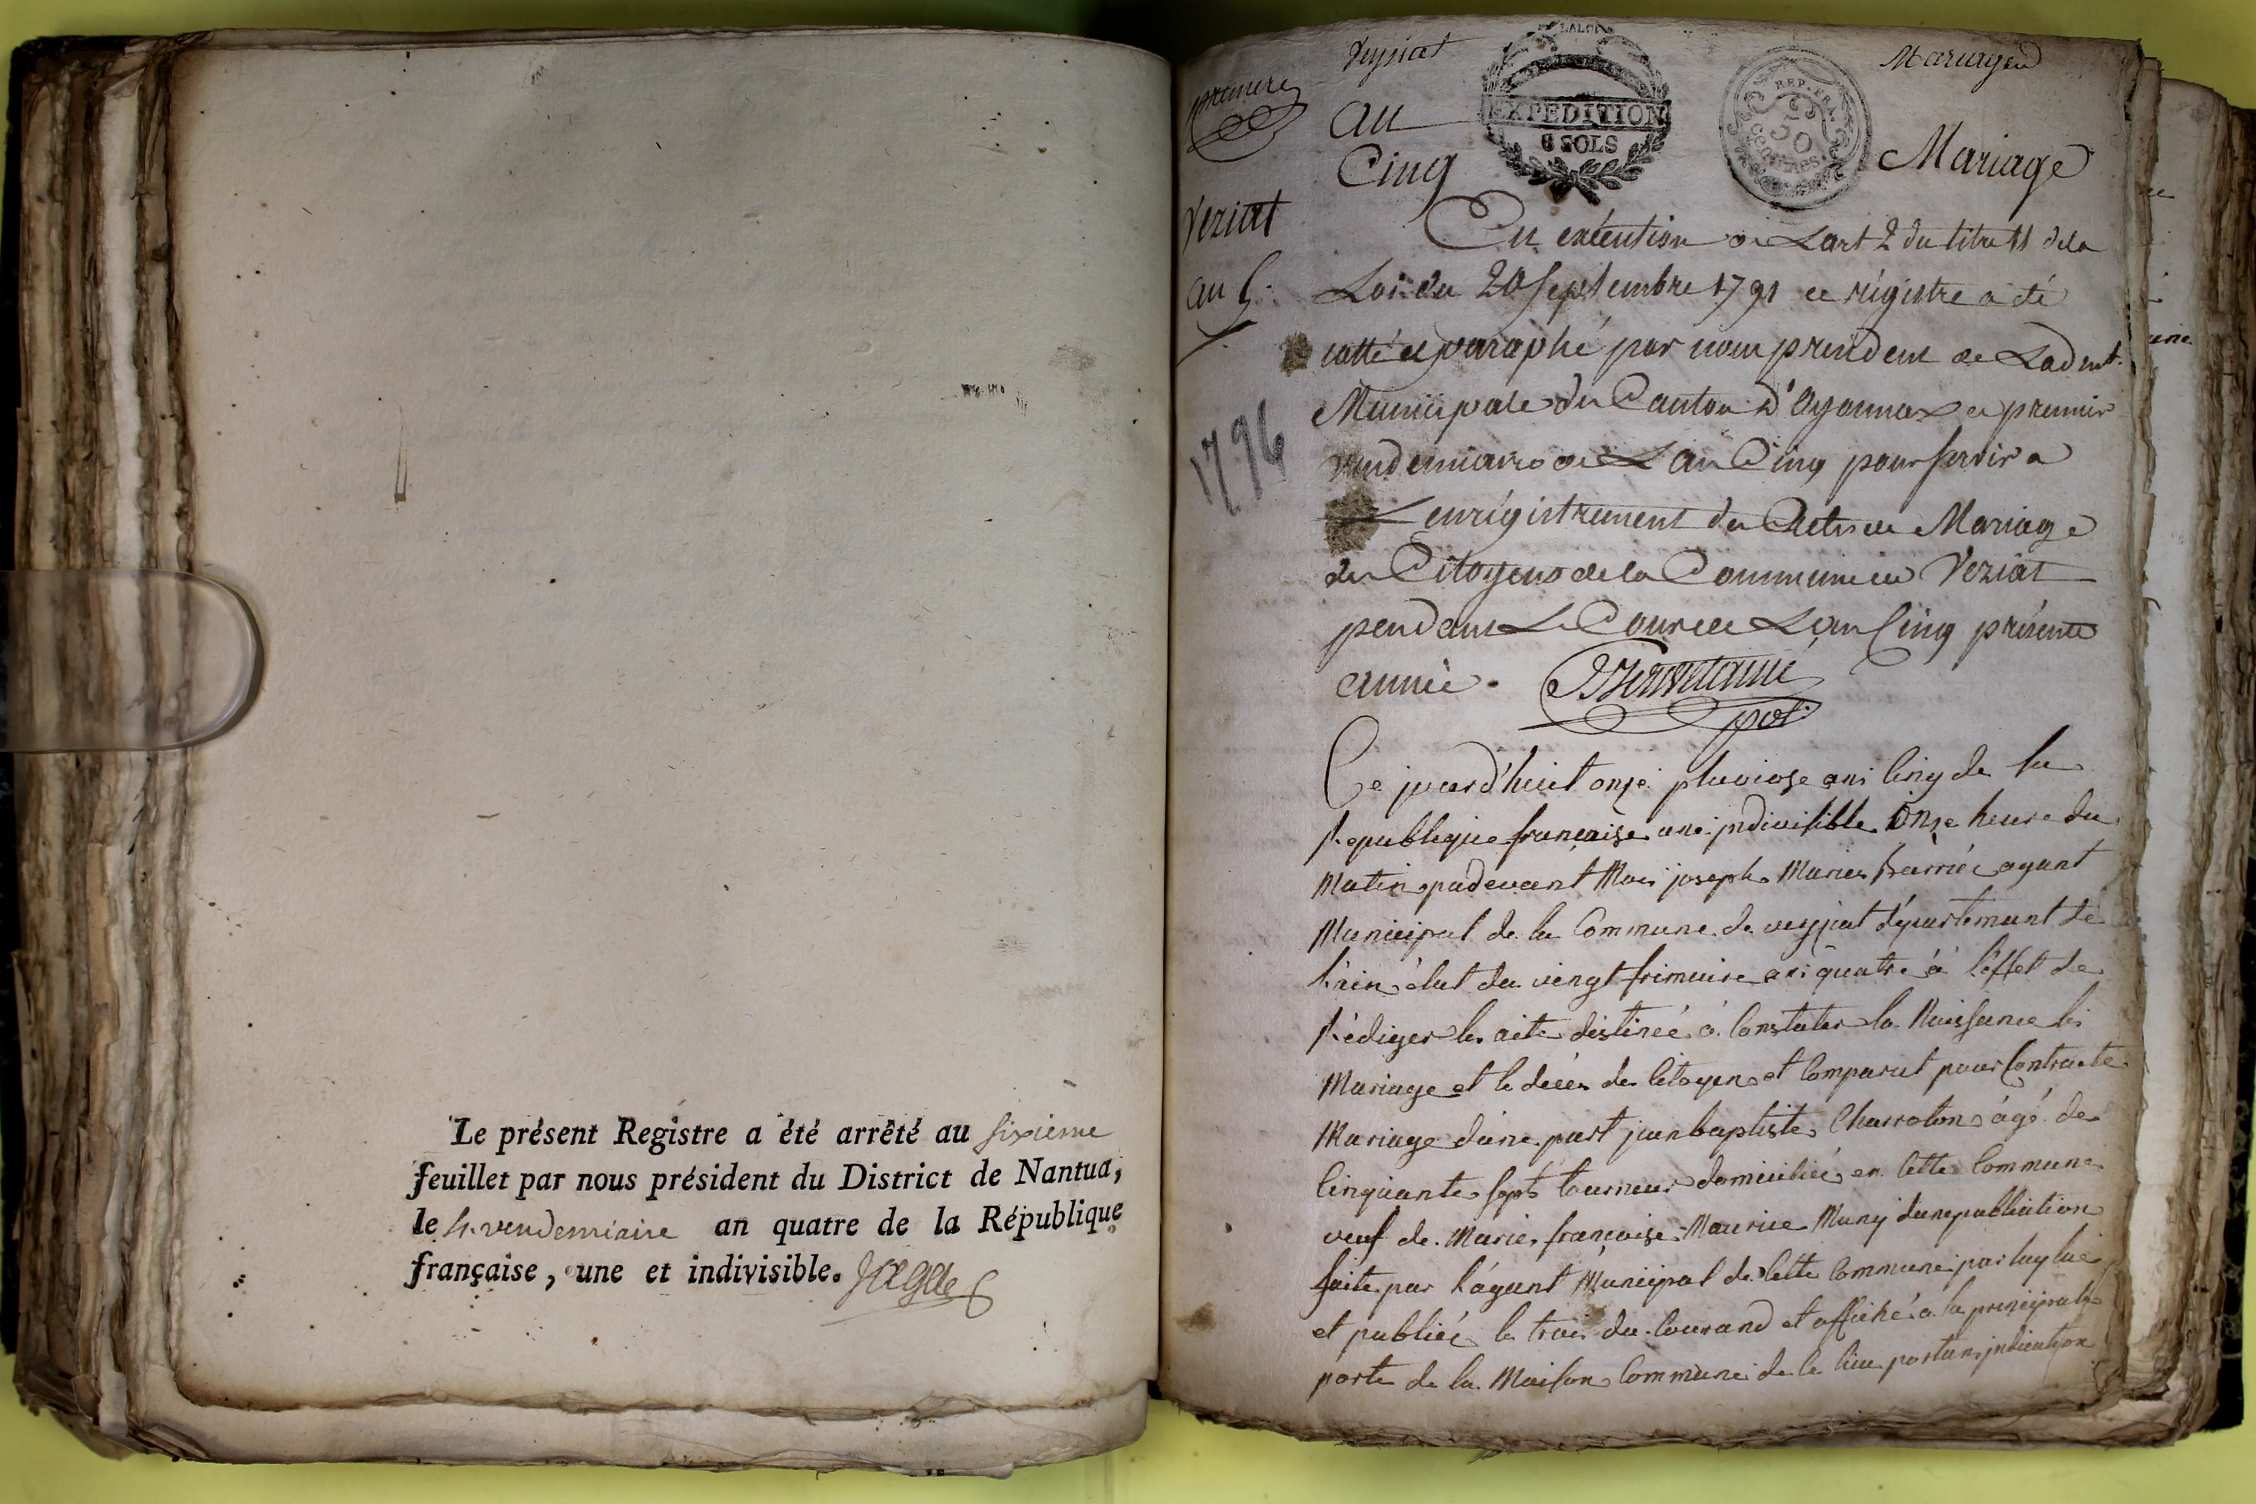 Le présent Registre a été arrêté au sixieme
feuillet par nous président du District de Nantua,
le 4. vendemiaire an quatre de la République
française, une et indivisible.
Veysiat
Mariages
premiere
LA LOI
EXPEDITION
6 SOLS
REP. FRA.
50
centimes
au
Cinq
Mariage
Veziat
au 5.
1796
En exécution de Lart 2 du titre 11 dela
Loi du 20 Septembre 1791 ce régistre a été
cotté et paraphé par nous président de Ladmt.
Municipale du Canton d'Oyonnax ce premier
vendemiaire de L'an Cinq pour servir a
L'enrégistrement des Actes de Mariage
des Citoyens de la Commune de Veziat
pendant Le Cours de L'an Cinq présente
année.
pdt.
Ce jourd'huit onze pluviose ans Cinq de la
Republique française une indivisible Onze heure du
Matin padevant Moi joseph Marie agant
Municipal de la Commune de veyziat département de
l'ain élut du vingt frimaire ans quatre à l'effet de
Rédiger les acte destineé à Constater la Naissance les
Mariage et le décés des Citoyens et Comparut pour Contracte
Mariage dune part jean baptiste Charroton ágé de
Cinquante sept tourneur domiciliée en Cette Commune
veuf de Marie françoise Maurice Muny dune publication
faite par l'ágant Municipal de Cette Commune par luy lue
et publiée le trois du Courand et affiché á la principale
porte de la Maison Commune de Ce lieu portans jndication